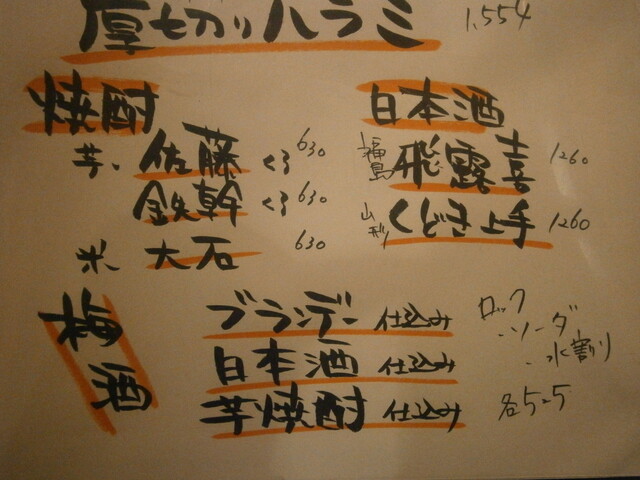 厚切りハラミ 1,554
焼酎
芋、 佐藤 くろ 630
鉄幹 くろ 630
米、 大石 630
日本酒
福島 飛露喜 1260
山形 くどき上手 1260
梅酒
ブランデー仕込み
日本酒 仕込み
芋焼酎 仕込み
ロック
・ソーダ
・水割り
各525